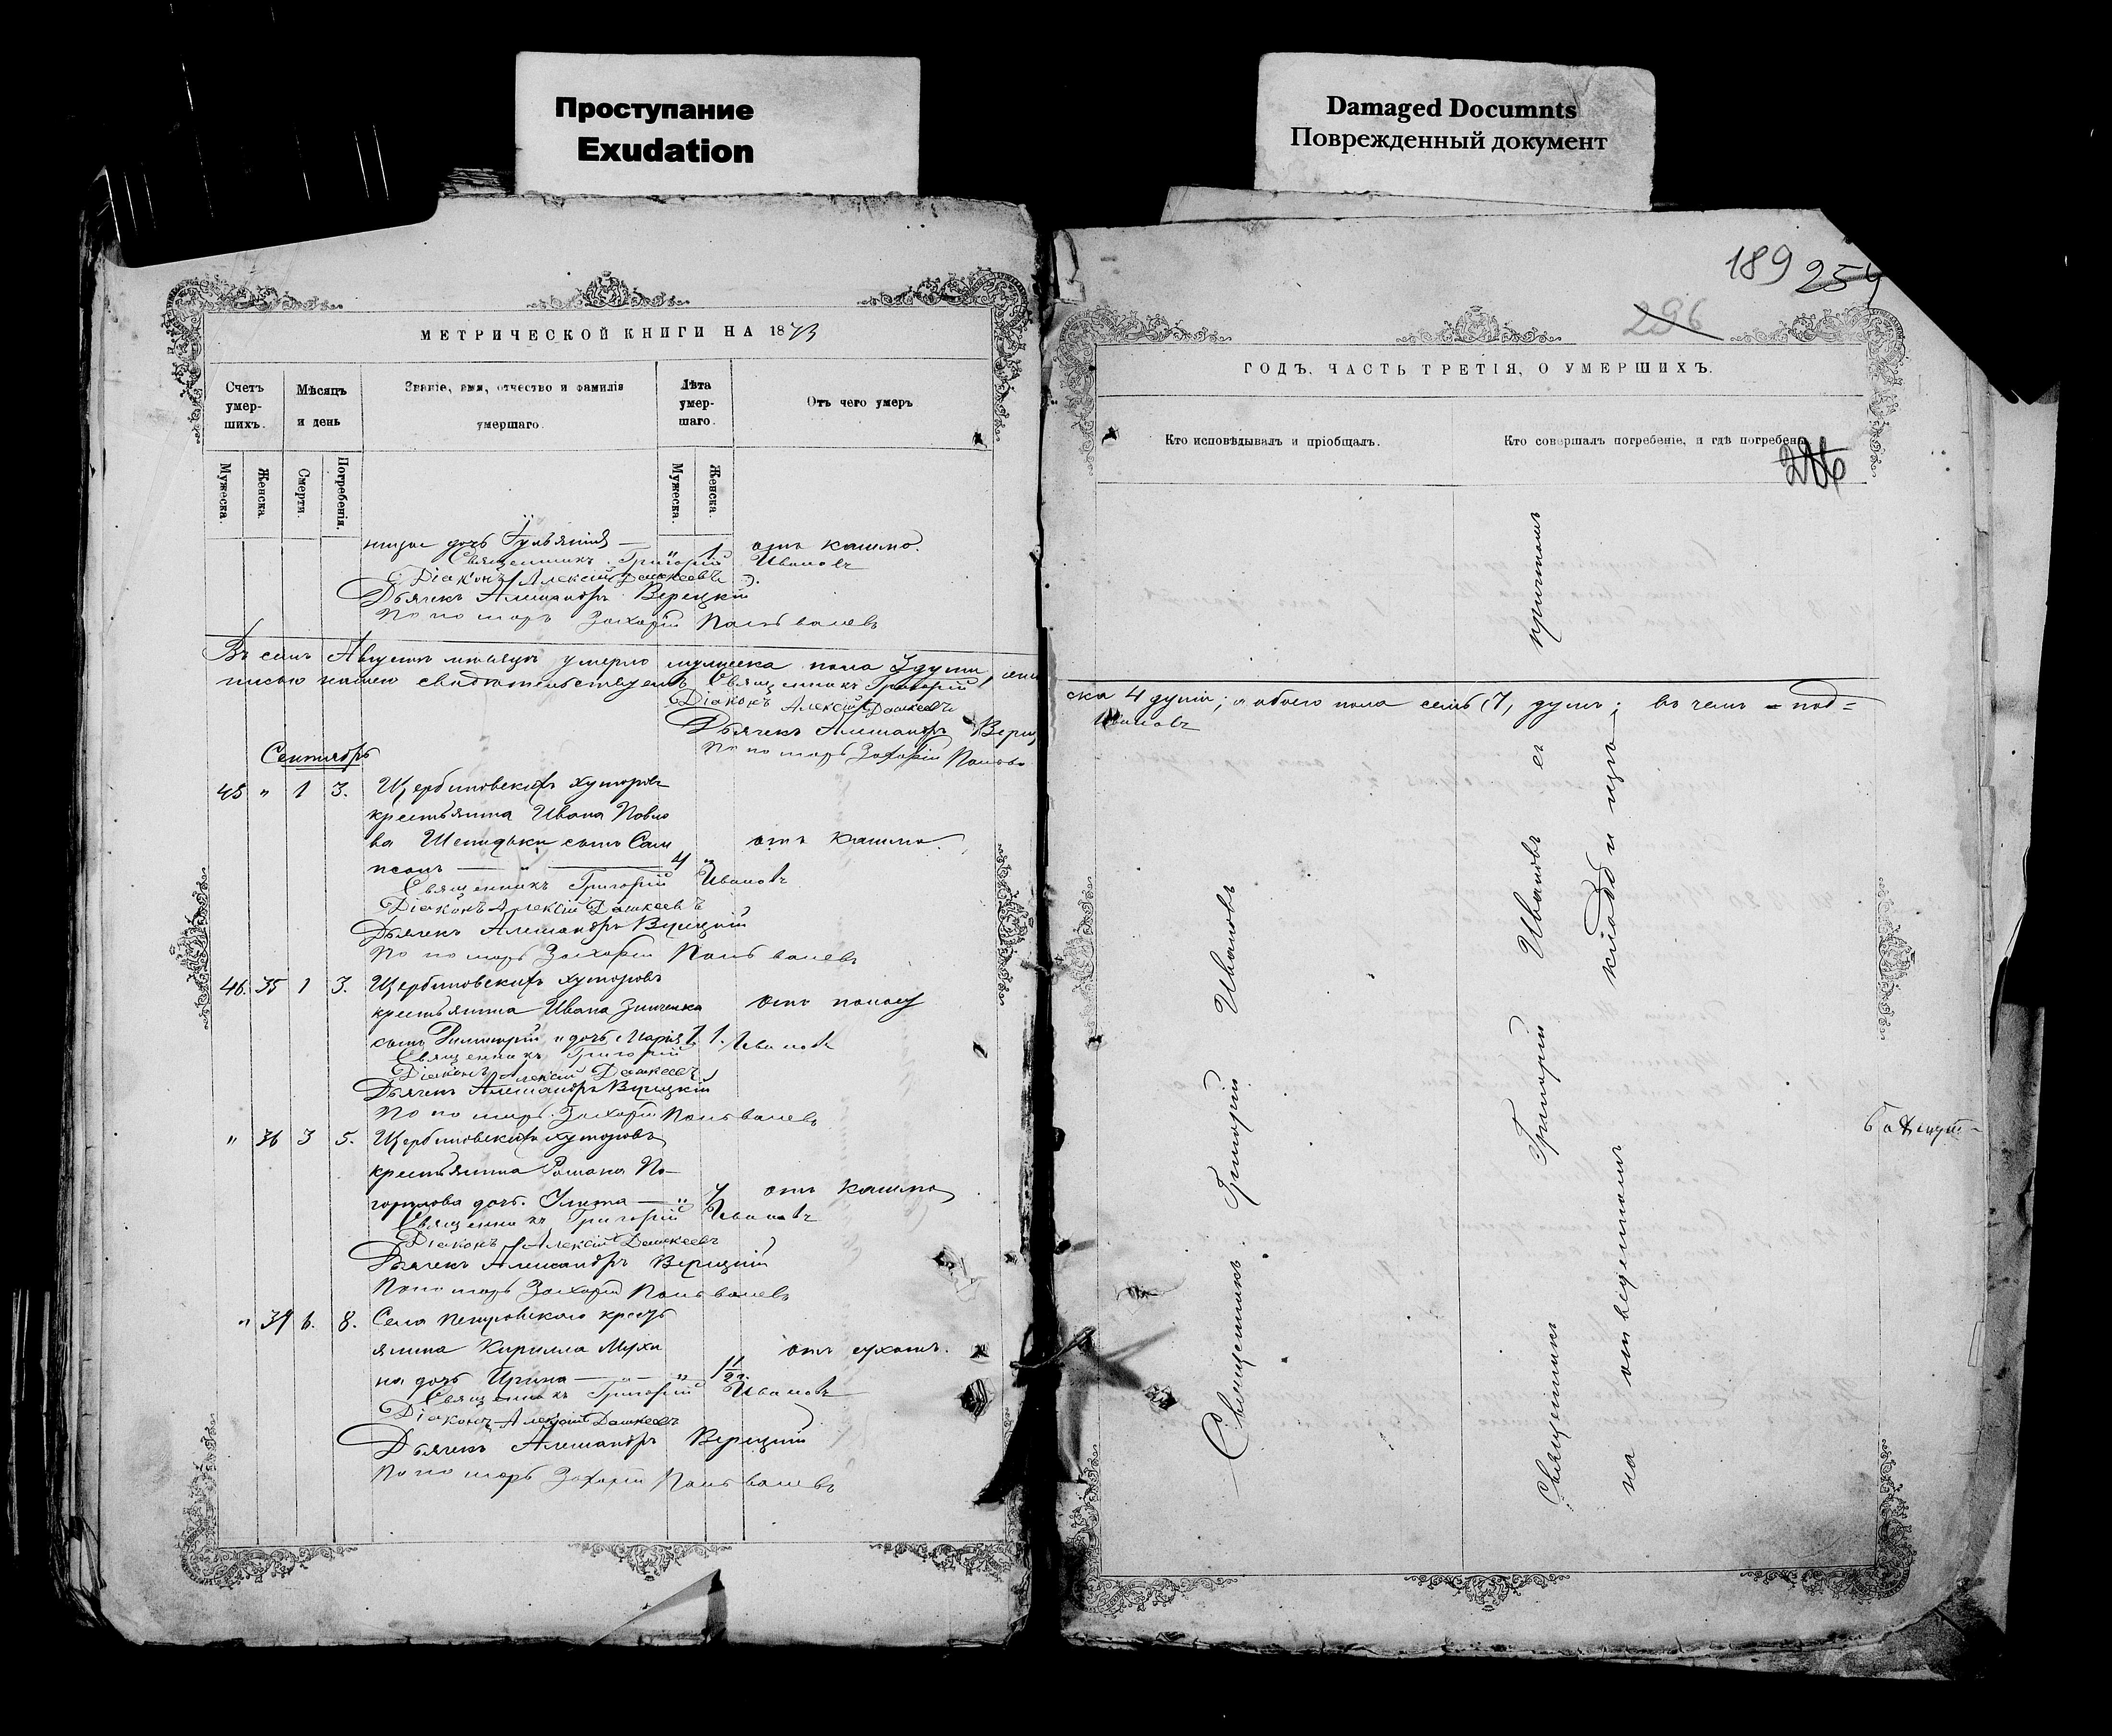 Проступание
Exudation
Damaged Documnts
Поврежденный документ
МЕТРИЧЕСКОЙ КНИГИ НА 1873
Счетъ умер-шихъ.
Мѣсяцъ и день
Званіе, имя, отчество и фамилія умершаго.
Лѣта умер-шаго.
Отъ чего умеръ
Мужеска.
Женска.
Смерти.
Погребенія.
Мужеска.
Женска.
дочь Іульянія — " 1. отъ кашлю.
Священникъ Григорій Ивановъ
Діаконъ Алексій Дашкеевъ
Дьячекъ Александръ Верецкій
Пономарь Захарій
Въ семъ Августѣ мѣсяцѣ умерло мужеска пола 3 души,
писью нашею свидѣтельствуемъ Священникъ Григорій
Діаконъ Алексій Дашкеевъ
Дьячекъ Александръ
Пономарь Захарій
Сентябрь
45 " 1 3. Щербиновскихъ хуторовъ
крестьянина Ивана Павло
ва сынъ Сам отъ кашлю.
псонъ — 4 "
Священникъ Григорій Ивановъ
Діаконъ Алексій Дашкеевъ
Дьячекъ Александръ Верецкій
Пономарь Захарій
46. 35 1 3. Щербиновскихъ хуторовъ
крестьянина Ивана Зинченка отъ поносу
сынъ Димитрій и дочь Марія 1. 1. Ивановъ
Священникъ Григорій
Діаконъ Алексій Дашкеевъ
Дьячекъ Александръ Верецкій
Пономарь Захарій
" 36 3 5. Щербиновскихъ хуторовъ
крестьянина Романа По-
горѣлова дочь Улита — " отъ кашлю
Священникъ Григорій Ивановъ
Діаконъ Алексій Дашкеевъ
Дьячекъ Александръ Верецкій
Пономарь Захарій
" 37 6. 8. Села Петровскаго кресть
янина Кирилла Мухи
на дочь Ирина — " отъ сухотъ.
Священникъ Григорій Ивановъ
Діаконъ Алексій Дашкеевъ
Дьячекъ Александръ Верецкій
Пономарь Захарій
189 254
296
ГОДЪ, ЧАСТЬ ТРЕТІЯ, О УМЕРШИХЪ.
Кто исповѣдывалъ и пріобщалъ.
Кто совершалъ погребеніе, и гдѣ погребены.
ска 4 души; а обоего пола семь (7) душъ; въ чемъ = под=
Ивановъ
Священникъ Григорій Ивановъ
Священникъ Григорій Ивановъ съ причтомъ
на отведенномъ кладбищѣ